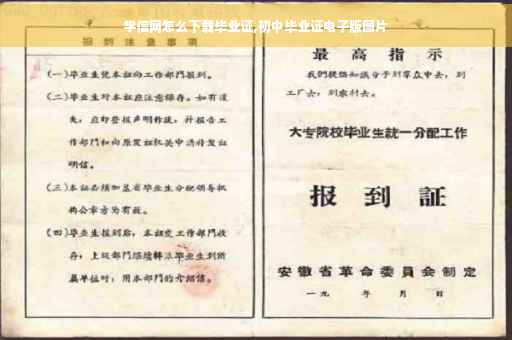 学信网怎么下载毕业证,初中毕业证电子版图片
报到注意事项
(一)毕业生凭本证向工作部门报到。
(二)毕业生对本证应注意保存。如有遗
失,应即登报声明作废,并报告工
作部门和向原发证机关申请补发证
明信。
(三)本证必须加盖省毕业生分配领导机
构公章方为有效。
(四)毕业生报到后,本证交工作部门收
存,上级部门继续转派毕业生到所
属单位时,用本部门的介绍信。
最高指示
我们提倡知识分子到群众中去,到
工厂去,到农村去。
大专院校毕业生统一分配工作
报到证
安徽省革命委员会制定
一九 年 月 日